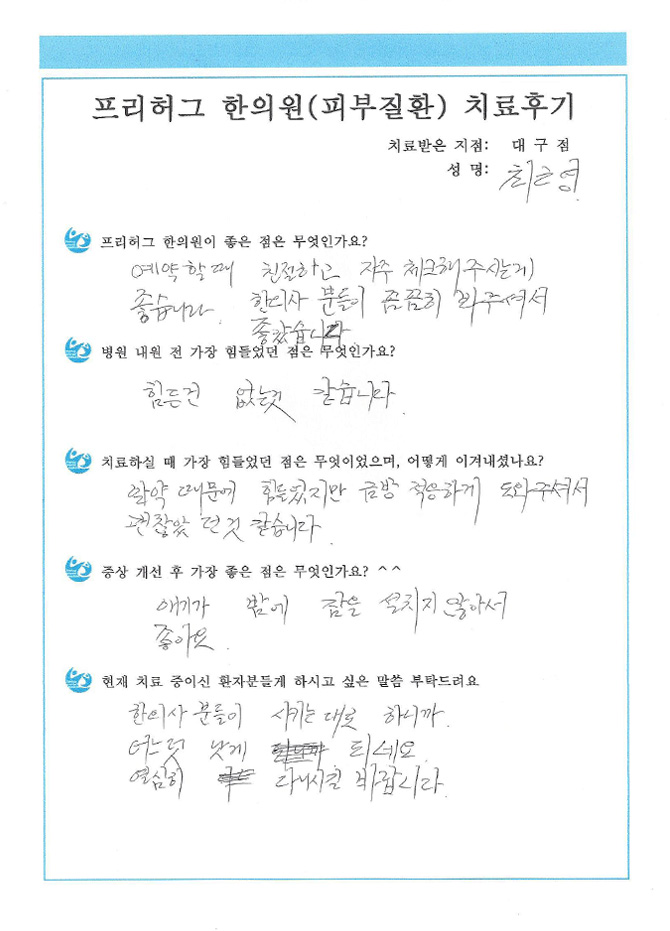 프리허그 한의원(피부질환) 치료후기
치료받은 지점: 대구점
성 명: 최근영
프리허그 한의원이 좋은 점은 무엇인가요?
예약할때 친절하고 자주 체크해주시는게
좋습니다. 한의사 분들이 꼼꼼히 봐주셔서
좋았습니다.
병원 내원 전 가장 힘들었던 점은 무엇인가요?
힘든건 없는것 같습니다.
치료하실 때 가장 힘들었던 점은 무엇이었으며, 어떻게 이겨내셨나요?
한약 때문에 힘들었지만 금방 적응하게 도와주셔서
괜찮았던 것 같습니다.
증상 개선 후 가장 좋은 점은 무엇인가요? ^^
애기가 밤에 잠을 설치지 않아서
좋아요.
현재 치료 중이신 환자분들게 하시고 싶은 말씀 부탁드려요
한의사 분들이 시키는대로 하니까.
어느덧 낫게 되네요.
열심히 다니시길 바랍니다.